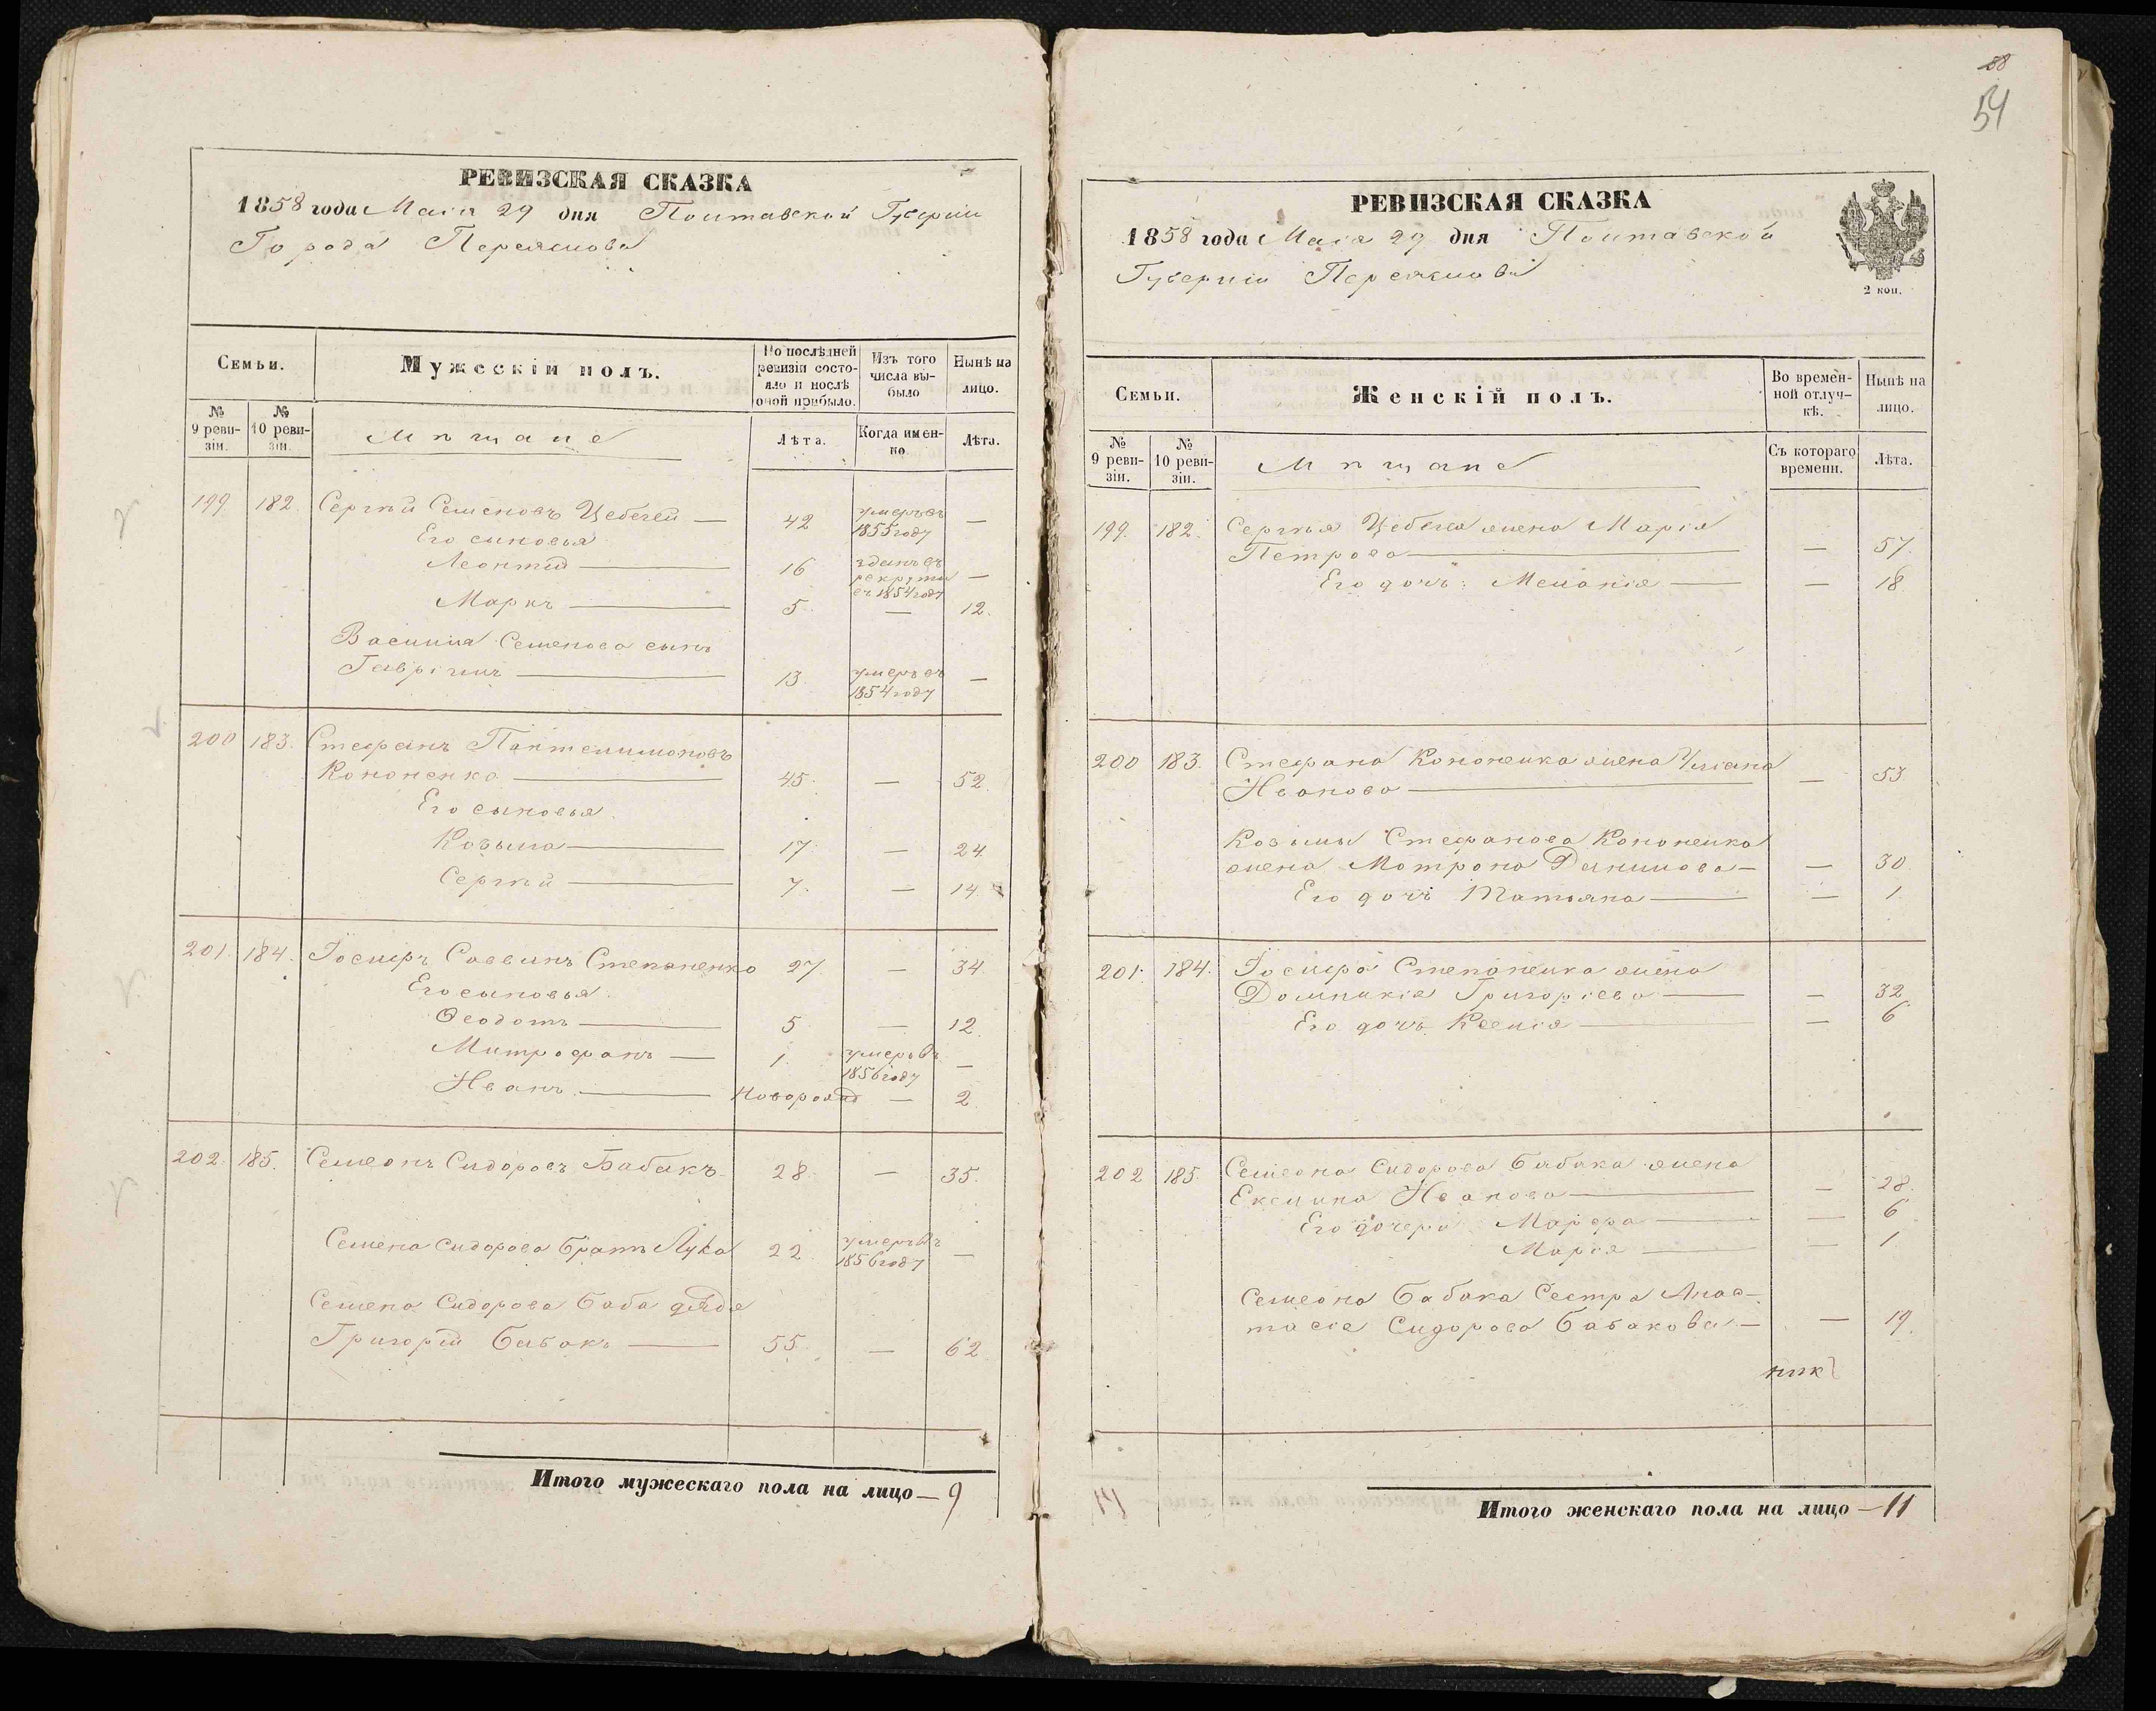 РЕВИЗСКАЯ СКАЗКА
1858 года Маія 29 дня Полтавской Губерніи
Города Переяслова
Семьи.
Мужескій полъ.
По послѣдней ревизіи состояло и послѣ оной прибыло.
Изъ того числа выбыло
Нынѣ на лицо.
№ 9 ревизіи.
№ 10 ревизіи.
Мѣщане
Лѣта.
Когда именно
Лѣта.
199. 182. Сергѣй Семеновъ Цебегей — 42 умеръ въ 1855 году —
Его сыновья
Леонтій — 16 зданъ въ рекруты въ 1854 году —
Маркъ — 5 — 12.
Василия Семенова сынъ
Гаврiилъ — 13 умеръ въ 1854 году —
200 183. Стефанъ Пантелимоновъ
Кононенко — 45 — 52
Его сыновья.
Козьма — 17 — 24
Сергѣй — 7 — 14
201. 184. Іосифъ Саввинъ Степаненко 27 — 34
Его сыновья.
Ѳеодотъ — 5 — 12
Митрофанъ — 1. умеръ въ 1856 году —
Иванъ — Новорожд — 2
202. 185. Семеонъ Сидоровъ Бабакъ — 28 — 35.
Семена Сидорова братъ Лука 22 умеръ въ 1856 году —
Семена Сидорова Баба дядя
Григорій Бабакъ — 55 — 62
Итого мужескаго пола на лицо — 9
58
54
РЕВИЗСКАЯ СКАЗКА
1858 года Маія 29 дня Полтавской
Губерніи Переяслова
2 коп.
Семьи.
Женскій полъ.
Во временной отлучкѣ.
Нынѣ на лицо.
№ 9 ревизіи.
№ 10 ревизіи.
Мѣщане
Съ котораго времени.
Лѣта.
199. 182. Сергѣя Цебегея жена Марія
Петрова — — 57
Его дочь: Меланія — — 18
200 183. Стефана Кононенка жена Уліана
Иванова — — 53
Козьмы Стефанова Кононенка
жена Матрона Данилова — — 30
Его дочь Татьяна — — 1.
201. 184. Іосифа Степаненка жена
Домникія Григоріева — — 32
Его дочь Ксенія — — 6
202 185. Семеона Сидорова Бабака жена
Екелина Иванова — — 28.
Его дочери Марфа — — 6
Марія — — 1
Семеона Бабака Сестра Анас-
тасія Сидорова Бабакова — — 19.
Итого женскаго пола на лицо — 11